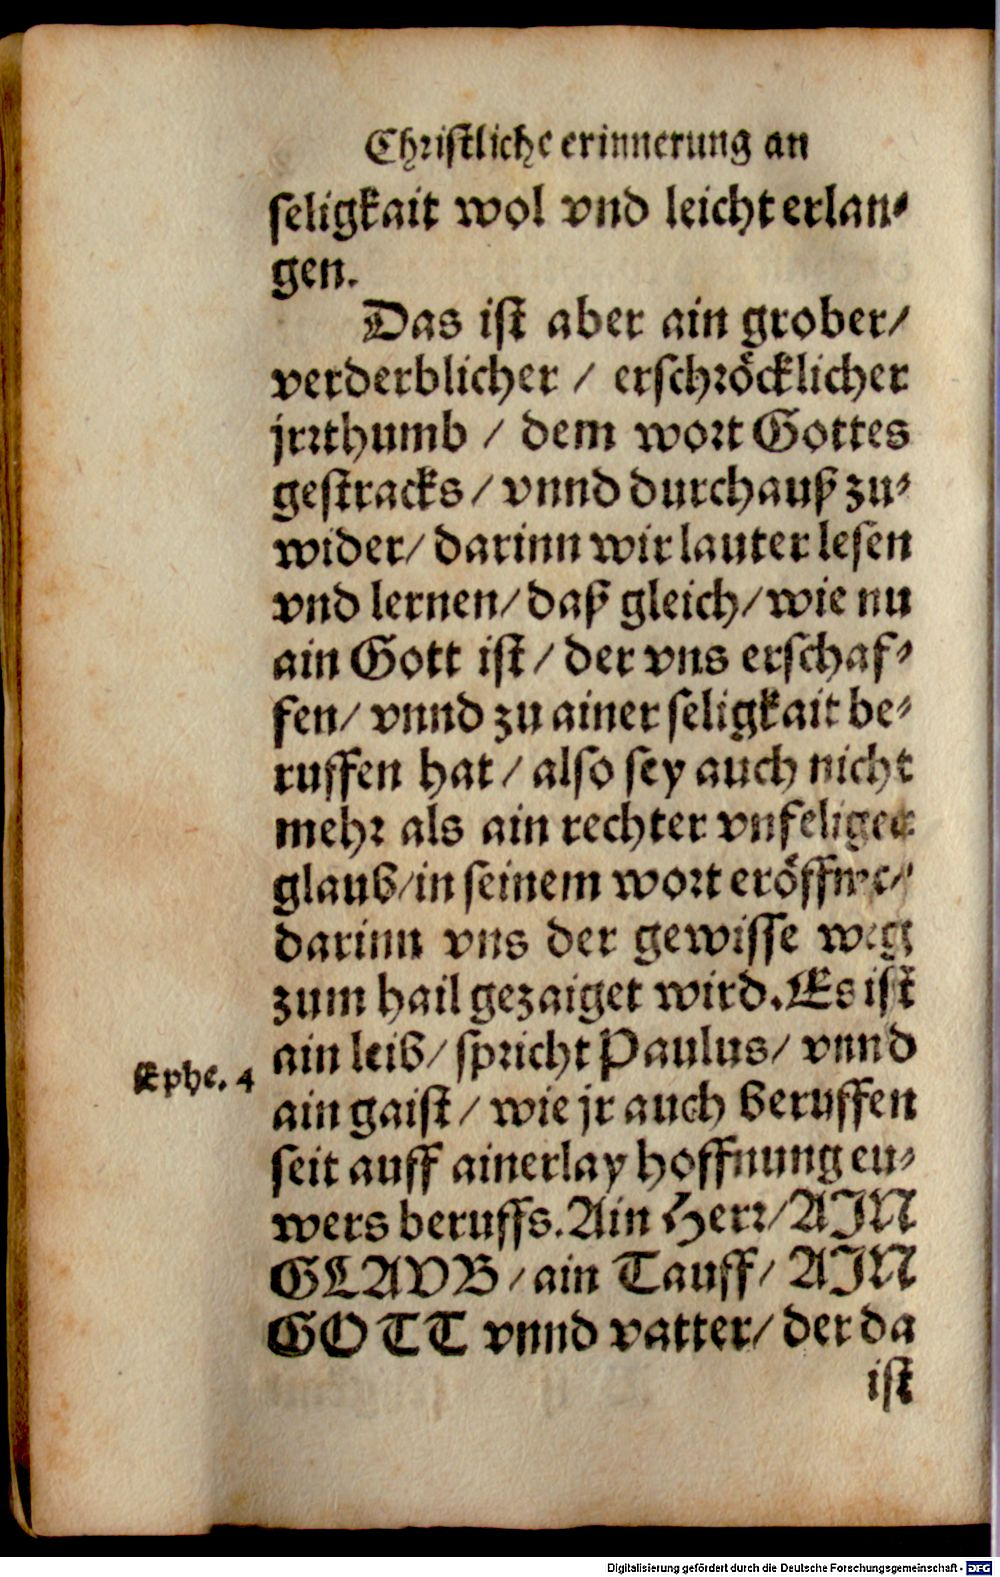 Christliche erinnerung an
seligkait wol vnd leicht erlan-
gen.
Das ist aber ain grober/
verderblicher / erschröcklicher
jrrthumb / dem wort Gottes
gestracks / vnnd durchauß zu-
wider/ darinn wir lauter lesen
vnd lernen/ daß gleich/ wie nu
ain Gott ist / der vns erschaf-
fen/ vnnd zu ainer seligkait be-
ruffen hat / also sey auch nicht
mehr als ain rechter vnseliger
glaub/in seinem wort eröffnet/
darinn vns der gewisse weg
zum hail gezaiget wird. Es ist
ain leib/ spricht Paulus/ vnnd
Ephe. 4
ain gaist / wie jr auch beruffen
seit auff ainerlay hoffnung eu-
wers beruffs. Ain Herr/ AIN
GLAVB / ain Tauff/ AIN
GOTT vnnd vatter/ der da
ist
Digitalisierung gefördert durch die Deutsche Forschungsgemeinschaft - DFG